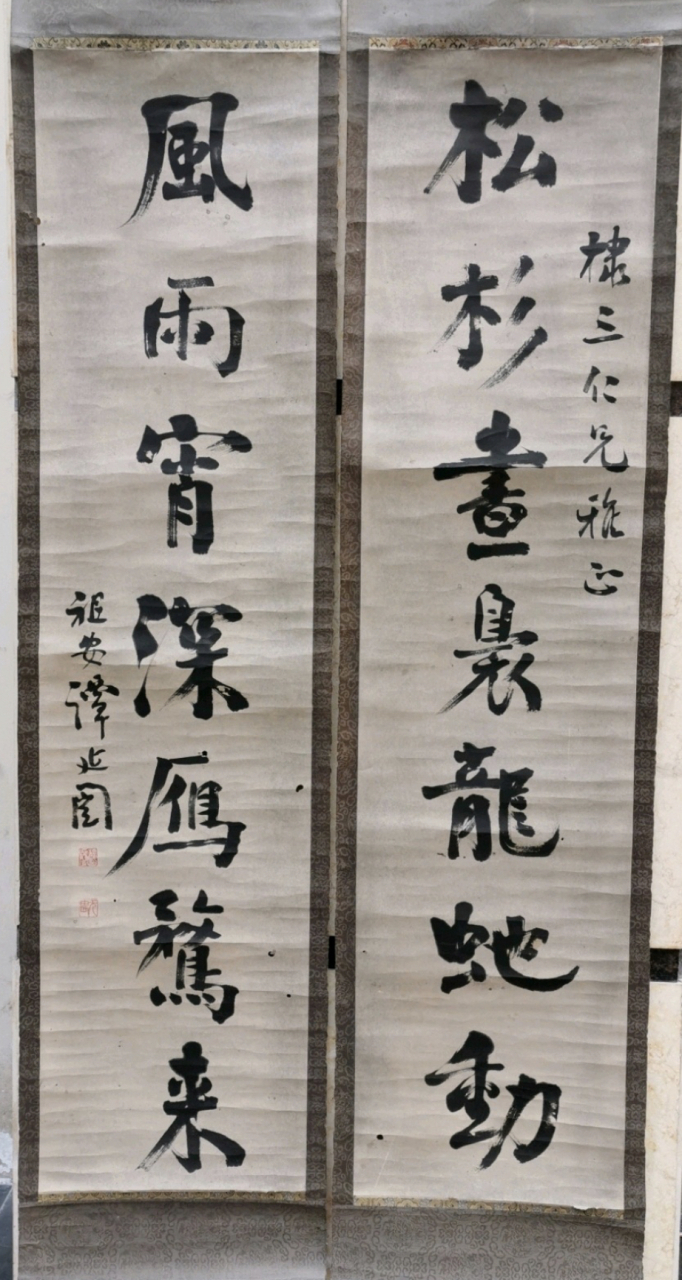 棣三仁兄雅正
松杉晝裊龍蛇動
風雨宵深鴈鶩来
祖安譚延闓